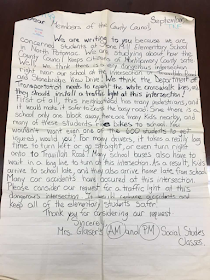 September
Dear Members of the County Council,
We are writing to you because we are
concerned students at Mill Elementary School
in North Potomac. We are studying about how the
County Council keeps citizens of Montgomery County safe.
Well, we think there is a very dangerous intersection
right near our school at the intersection of Travilah Road
and Drive. We think the Department
of Transportation needs to repaint the white crosswalk lines, and
they should install a traffic light at this intersection!
First of all, this neighborhood has many pedestrians, and
it would make it safer to cross the busy road. Since there is a
school only one block away, there are many kids nearby, and
many of these students ride bikes to school. You
wouldn't want even one of the 600 students to get
injured, would you? For many drivers, it takes a really long
time to turn left or go straight, or even turn right
onto to Travilah Road! Many school buses also have to
wait in a long line to turn at this intersection. As a result, kids
arrive to school late, and they also arrive home late from school.
Many car accidents have occured at this intersection.
Please consider our request for a traffic light at this
dangerous intersection. It will reduce accidents and
keep all of the elementary students safer.
Thank you for considering our request.
Sincerely,
Mrs. Glaser's AM and PM Social Studies
Classes